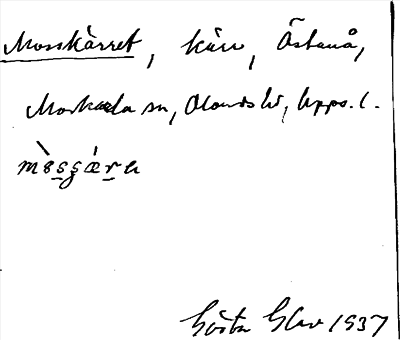 Mosskärret, kärr, Östanå,
Markarla sn, Olands hd, Upps. l.
Gösta Glav 1937